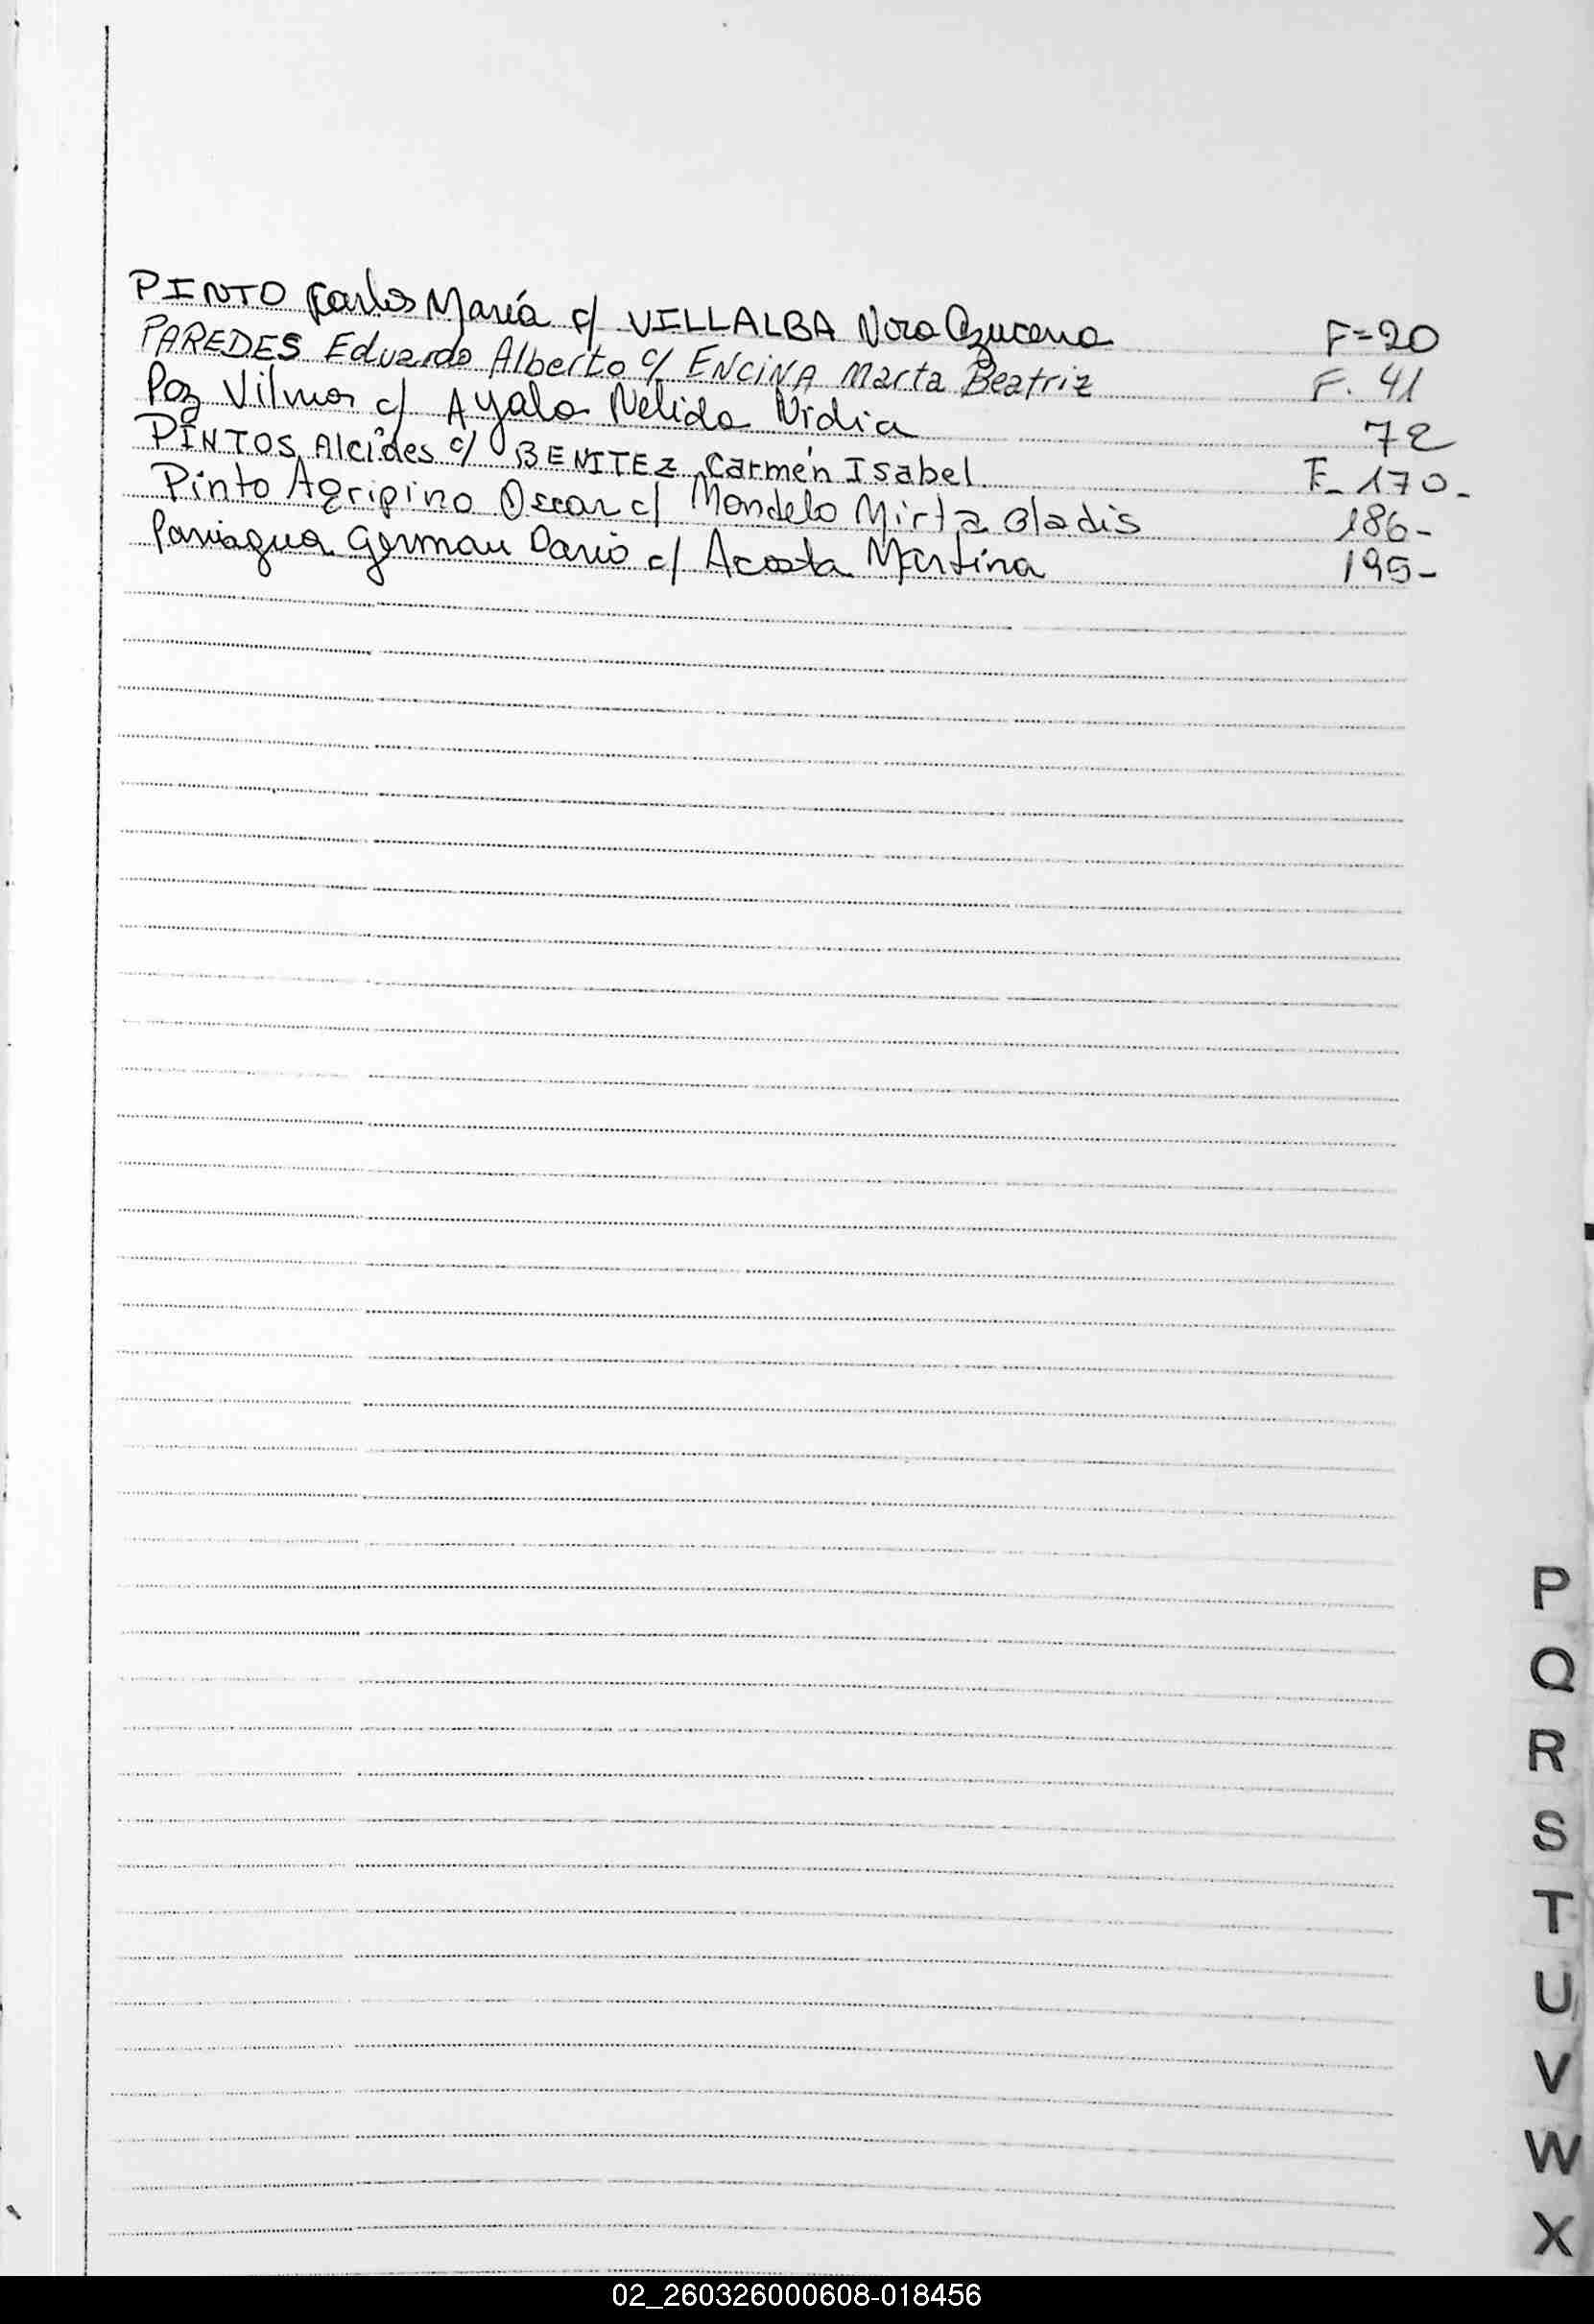 PINTO Carlos María c/ VILLALBA Nora Azucena F=20
PAREDES Eduardo Alberto c/ ENCINA Marta Beatriz F. 41
Poz Vilmar c/ Ayala Nelida Nidia 72
PINTOS Alcides c/ BENITEZ Carmen Isabel F_ 170_
Pinto Agripino Oscar c/ Mondelo Mirta Gladis 186-
Paniagua German Dario c/ Acosta Martina 195-
P
Q
R
S
T
U
V
W
X
02_260326000608-018456